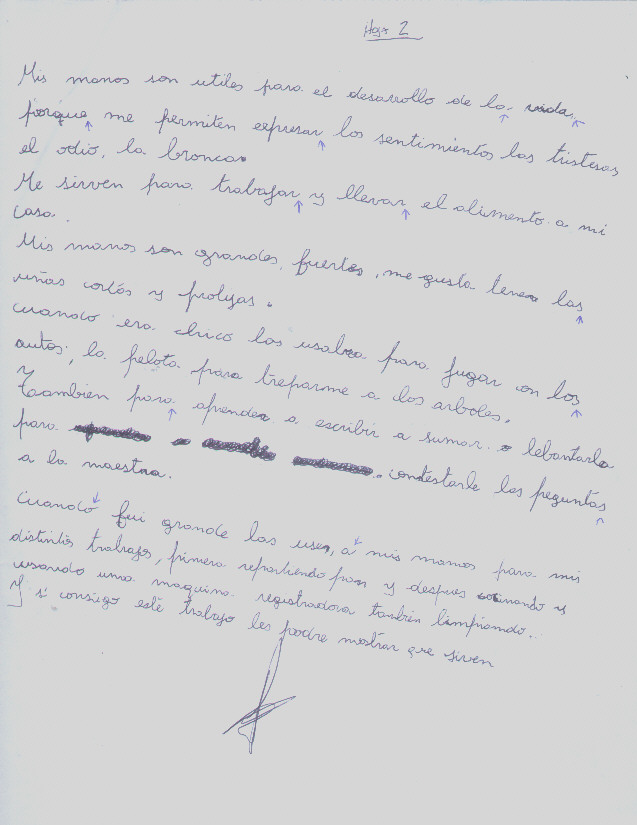 Hoja 2
Mis manos son utiles para el desarrollo de la vida.
porque me permiten expresar los sentimientos las tristesas
el odio, la bronca.
Me sirven para trabajar y llevar el alimento a mi
casa.
Mis manos son grandes, fuertes, me gusta tener las
uñas cortas y prolijas.
cuando era chico las usaba para jugar con los
autos, la pelota para treparme a los arboles,
y
Tambien para aprender a escribir a sumar. o lebantarla
para contestarle las preguntas
a la maestra.
cuando fui grande las use, a mis manos para mis
distintos trabajos, primero repartiendo pan y despues cocinando y
usando una maquina registradora tambien limpiando.
Y si consigo este trabajo les podre mostrar que siven